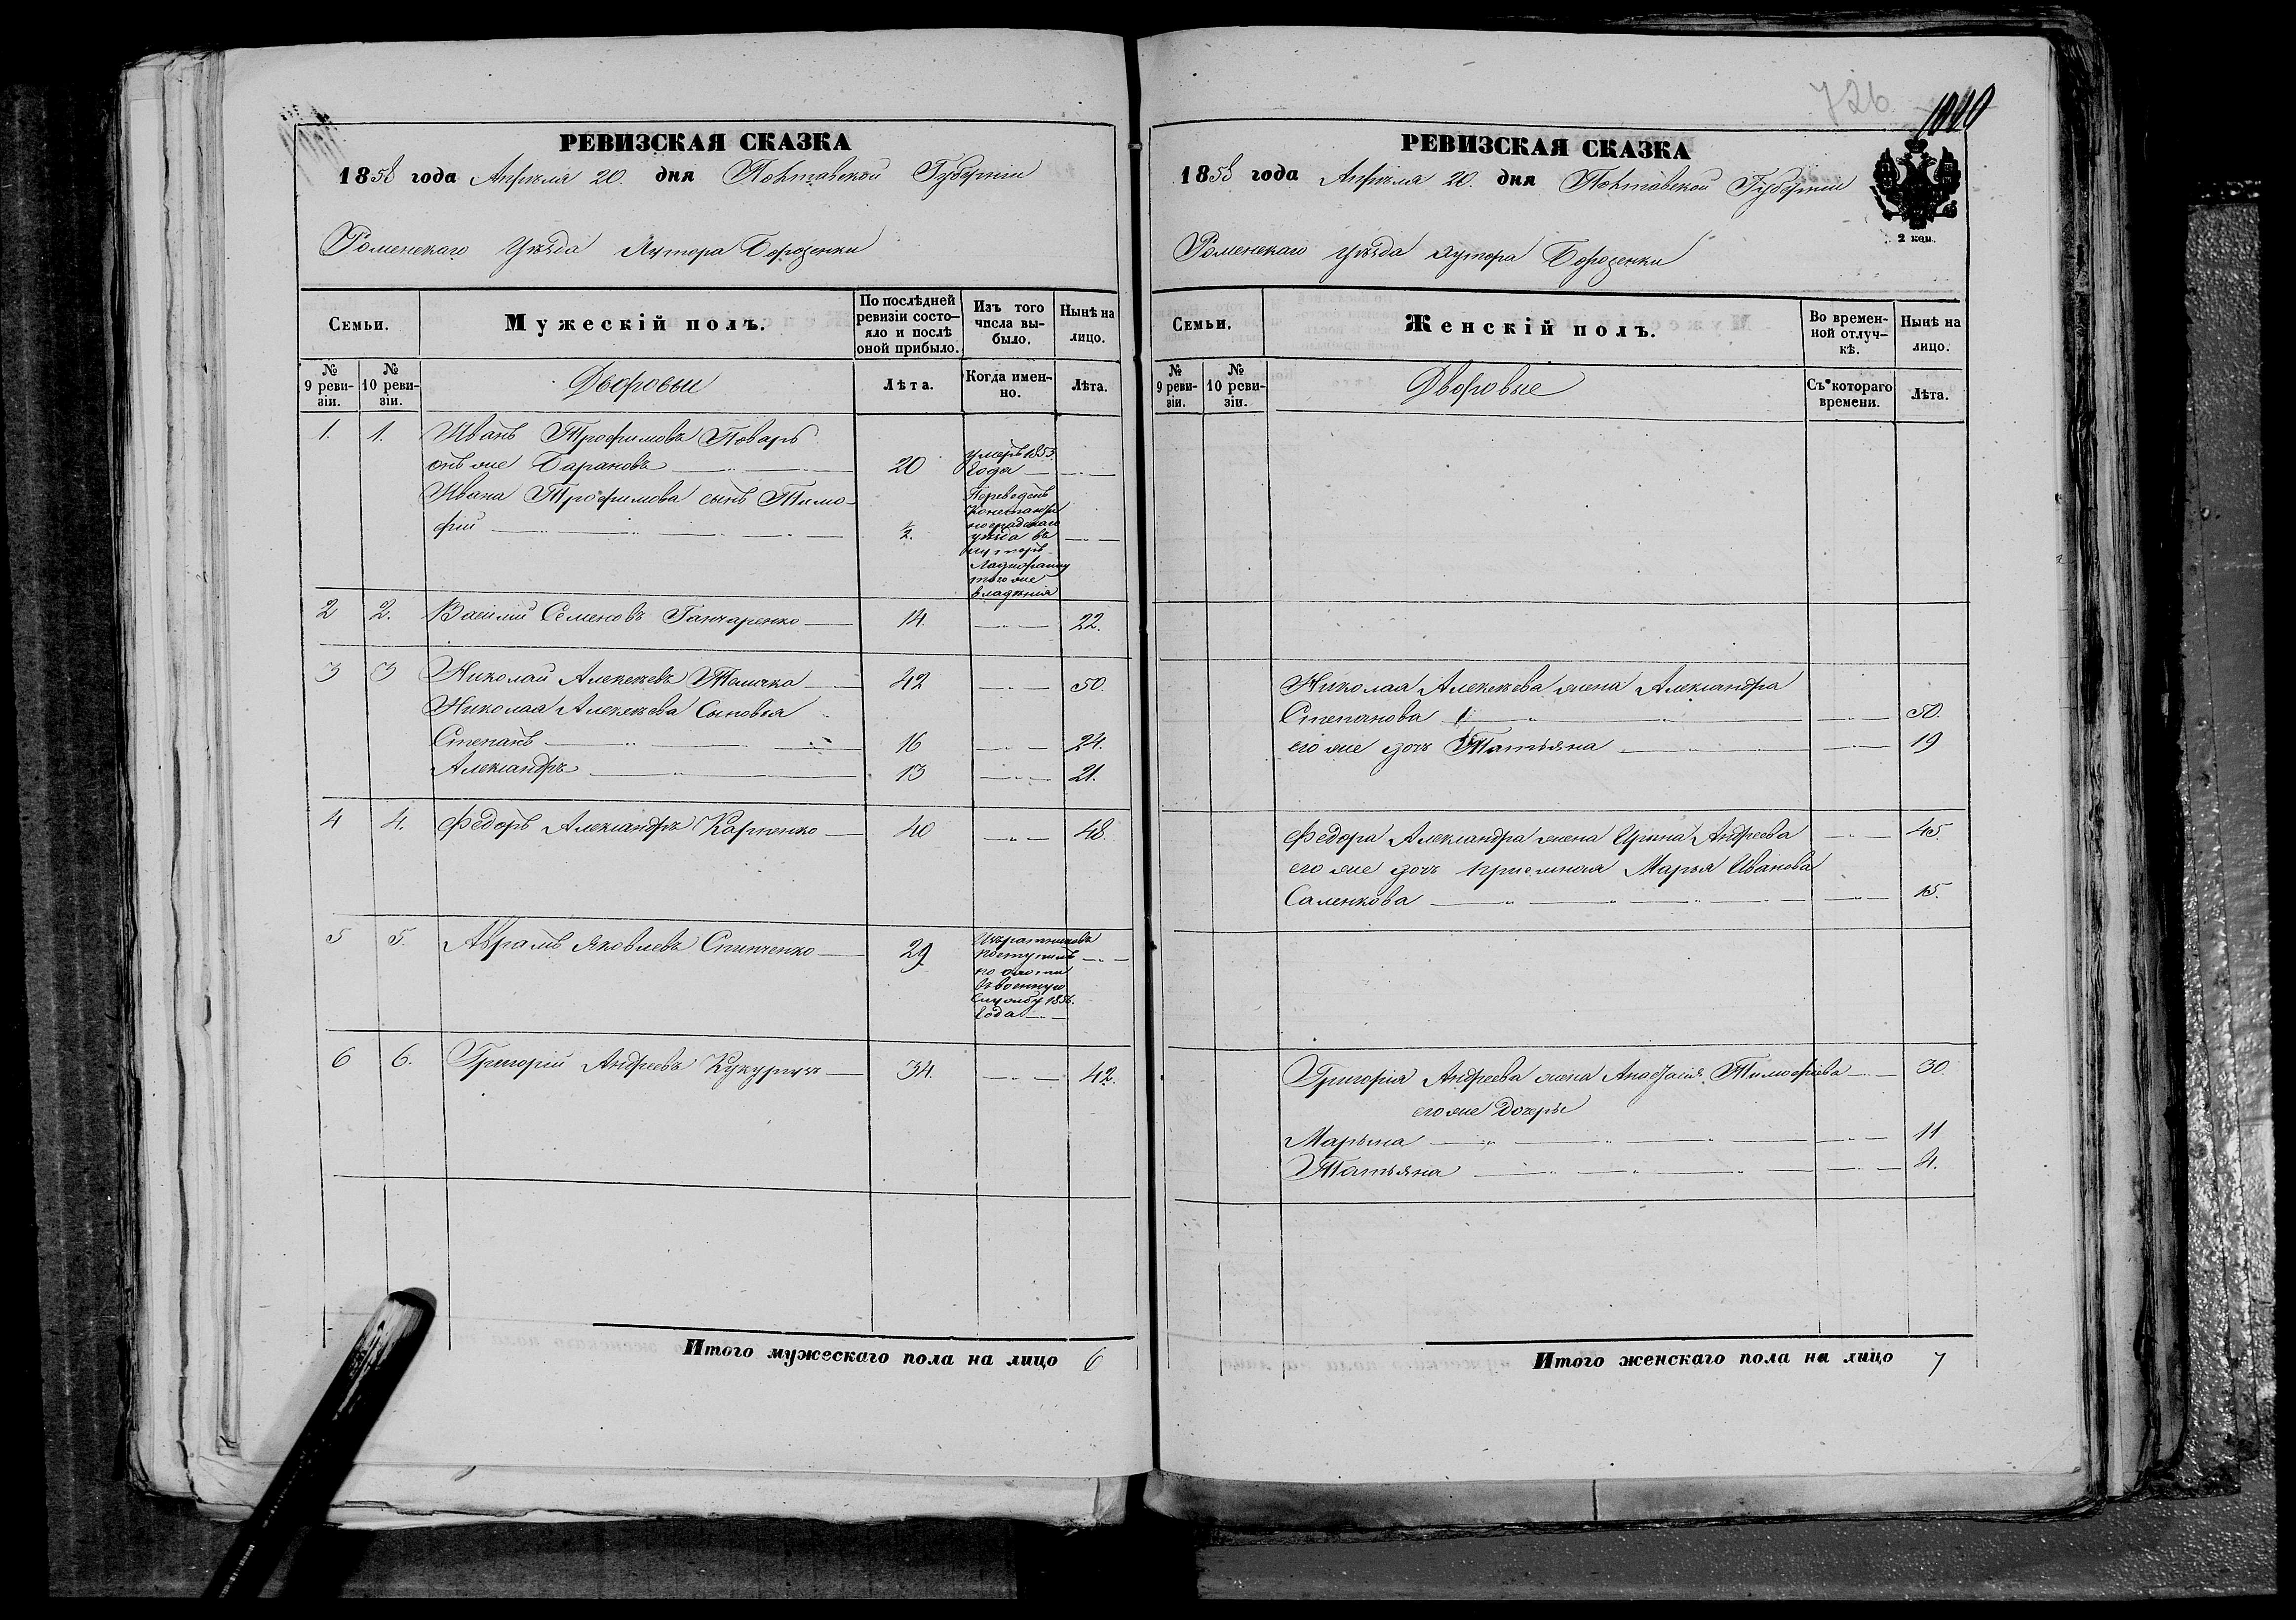 РЕВИЗСКАЯ СКАЗКА
1858 года Апрѣля 20. дня Полтавской Губерніи
Роменскаго Уѣзда Хутора Борозенки
Семьи.
Мужескій полъ.
По послѣдней ревизіи состо-
яло и послѣ
оной прибыло.
Изъ того
числа вы-
было.
Нынѣ на
лицо.
№
9 реви-
зіи.
№
10 реви-
зіи.
Дворовые
Лѣта.
Когда имен-
но.
Лѣта.
1. 1. Иванъ Трофимовъ Поваръ
онъ же Барановъ 20 умеръ 1853
года
Ивана Трофимова сынъ Тимо-
фій ½ Переведенъ
Константи
ноградскаго
уѣзда въ
хуторъ
того же
владѣнія
2 2. Василій Семеновъ Ганчаренко 14. 22.
3 3 Николай Алексѣевъ 42 50.
Николая Алексѣева Сыновья
Степанъ 16 24.
Александръ 13 21.
4 4. Федоръ Александръ Карпенко 40 48.
5 5. Абрамъ Яковлевъ Спинченко 29
поступилъ
въ военную
службу 1856.
года
6 6. Григорій Андреевъ 34. 42.
Итого мужескаго пола на лицо 6
726
РЕВИЗСКАЯ СКАЗКА
1858 года Апрѣля 20. дня Полтавской Губерніи
2 коп.
Роменскаго Уѣзда Хутора Борозенки
Семьи.
Женскій полъ.
Во времен-
ной отлуч-
кѣ.
Нынѣ на
лицо.
№
9 реви-
зіи.
№
10 реви-
зіи.
Дворовые
Съ котораго
времени.
Лѣта.
Николая Алексѣева жена Александра
Степанова 50.
его же дочь Татьяна 19
Федора Александра жена Ирина Андреева 45.
его же дочь приемная Марья Иванова
Саленкова 15.
Григорія Андреева жена Анастасія Тимофіева 30.
его же Дочери
Марьяна 11
Татьяна 4.
Итого женскаго пола на лицо 7